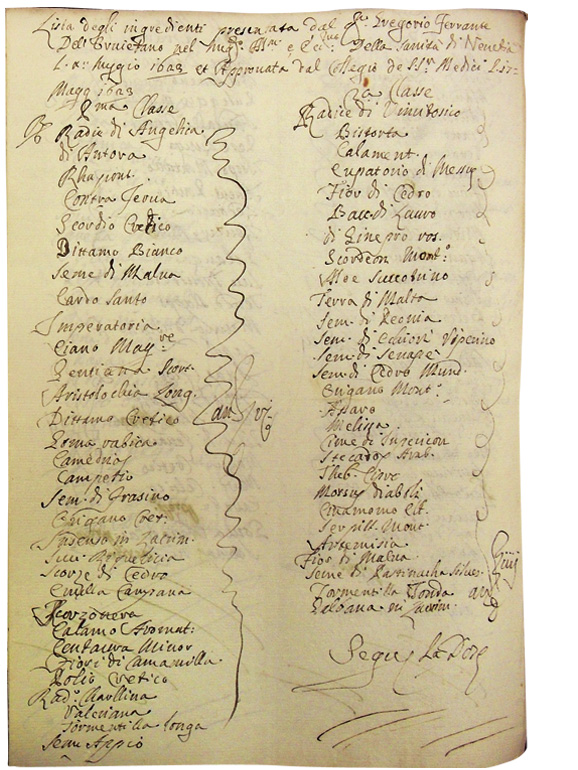 Lista degli ingredienti presentata dal Sr. Gregorio Ferrante
Dell'Orvietano nel Mag.to Ill.mo e Ecc. della Sanità di Venetia
Maggio 1623 et Approvata dal Collegio de SS.ri Medici
Magg 1623
Pma Classe
Radic di Angelica
di Antora
Rhapont.
Contra Jerva
Scordio Cretico
Dittamo Bianco
Seme di Malva
Cardo Santo
Imperatoria
Ciano Mag.re
Gentiana
Aristolochia Long.
Dittamo Cretico
Goma rabica
Camedrios
Campetio
Sem. di Frasino
Origano Cret.
Inscenso in Lacrim.
Scorze di Cedro
Enulla Campana
Scorzonera
Calamo Aromat.
Centaura Minor
Fiori di Camamilla
Polio Cretico
Rad.e Carllina
Valeriana
Tormentilla longa
Seme Appio
an
2a Classe
Radice di Vincitosico
Bistorta
Calament.
Eupatorio di Messue
Fior di Cedro
Bacc. di Lauro
di Ginepro ros.
Scordeon Mont.o
Aloe Succotrino
Terra di Malta
Sem. di Peonia
Sem. di
Sem. di Senape
Sem. di Cedro Mund.
Origano Mont.o
Assaro
Melissa
Cime di Ipericon
Steccados Arab.
Morsus diaboli
Cinamomo
Serpill. Mont.
Artemisia
Fior di Malva
Seme di Pastinacha Silves.
Tormentilla Tonda an
Galbana in Lacrim.
Segue